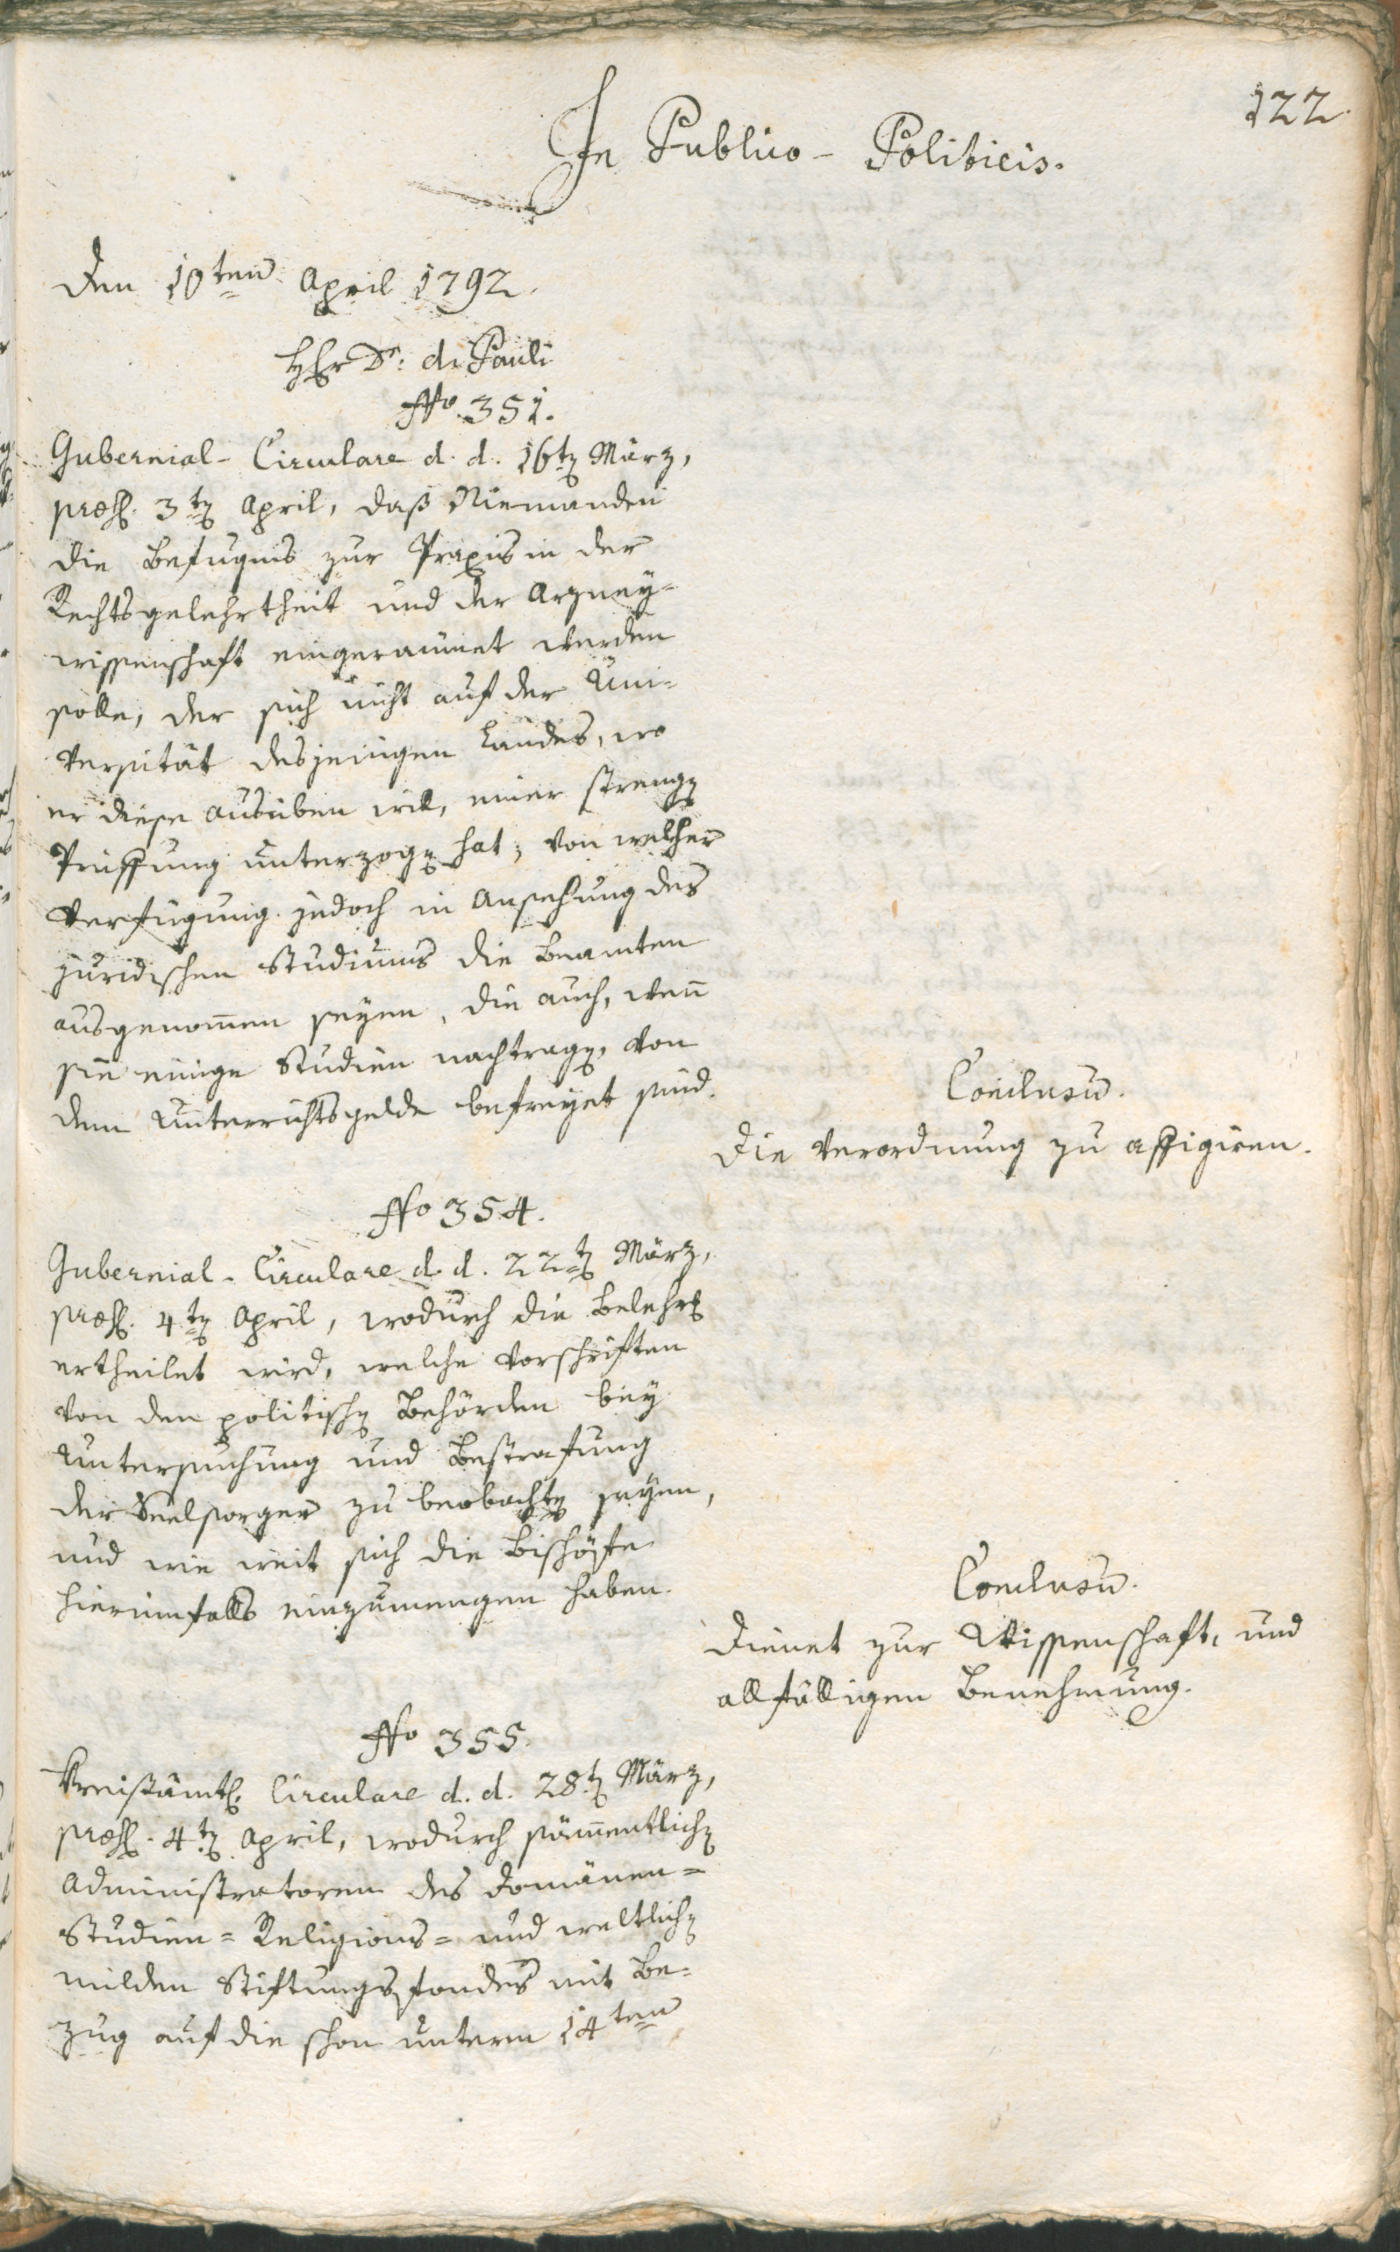 122.
In Publico-Politicis.
Den 10ten April 1792.
HEr Dr: di Pauli
No. 351.
Gubernial-Circulare d. d. 16tn März,
præs. 3tn April, daß Niemanden
die Befugnis zur Praxis in der
Rechtsgelehrtheit und der Arzney-
wissenschaft eingeraumet werden
solle, der sich nicht auf der Uni-
versität desjenigen Landes, wo
er diese ausüben will, einer strengen
Prüffung unterzogen hat; von welcher
Verfügung jedoch in Ansehung des
juridischen Studiums die Beamten
ausgenomen seyen, die auch, wen
sie einige Studien nachtragen, von
dem Unterrichtsgelde befreyet sind.
Conclusum.
Die Verordnung zu affigiren.
No 354.
Gubernial-Circulare d. d. 22tn März,
præs. 4tn April, wodurch die Belehrg
ertheilet wird, welche Vorschriften
von den politischen Behörden bey
Untersuchung und Bestrafung
der Seelsorger zu beobachten seyen,
und wie weit sich die Bischöfe
hierinfalls einzumengen haben.
Conclusum.
Dienet zur Wissenschaft, und
allfälligen Benehmung.
No 355.
Kreisämtl. Circulare d. d. 28tn März,
præs. 4tn April, wodurch sämentlichen
Administratoren des Domänen-
Studien- Religions- und weltlichen
milden Stiftungsfondes mit Be-
zug auf die schon unterm 14ten